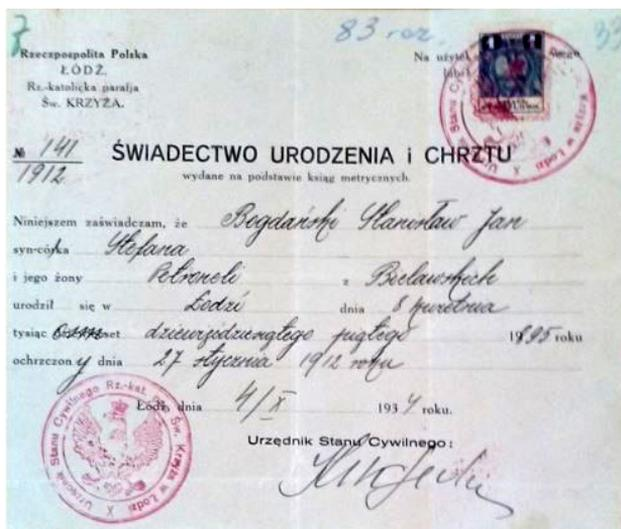 7
83 roz.
33
Rzeczpospolita Polska
ŁÓDŹ.
Rz.-katolicka parafja
Św. KRZYŻA.
Na użytek
№ 141
1912
ŚWIADECTWO URODZENIA i CHRZTU
wydane na podstawie ksiąg metrycznych.
Niniejszem zaświadczam, że Bogdański Stanisław Jan
syn-córka Stefana
i jego żony Petroneli z Bielawskich
urodził się w Łodzi dnia 8 kwietnia
tysiąc set dziewięćdziesiątego piątego 1895 roku
ochrzczony dnia 27 stycznia 1912 roku
Łódź, dnia 4/X 1934 roku.
Urzędnik Stanu Cywilnego:
Urzędnik Stanu Cywilnego Rz.-kat. Św. Krzyża w Łodzi X